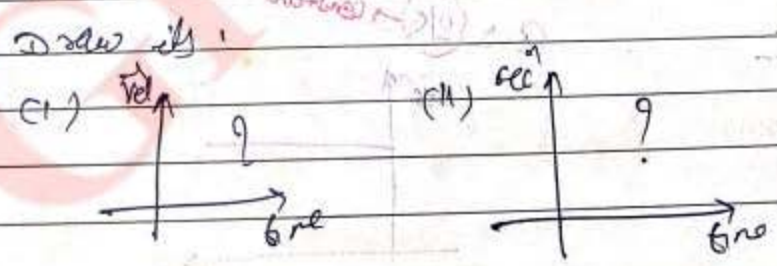 Draw its :
(I) Vel ? time
(II) accⁿ ? time